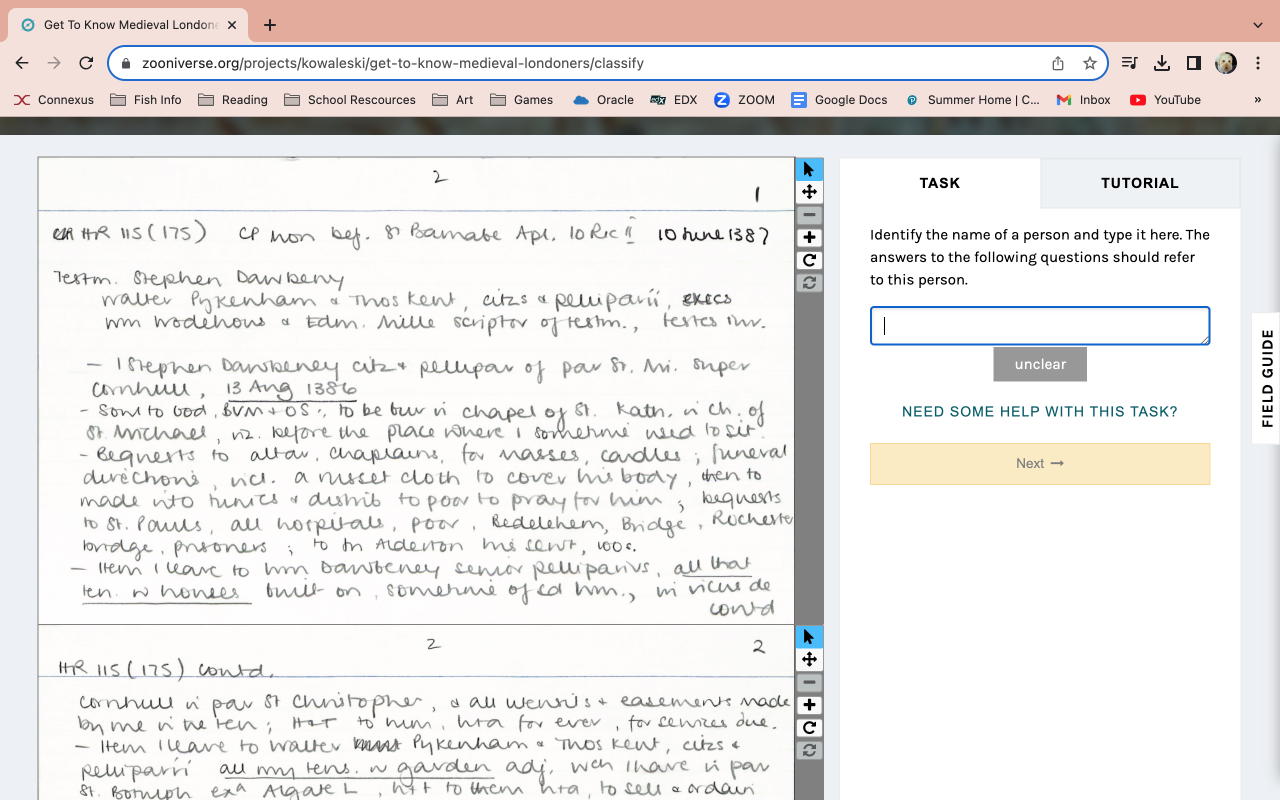 Get To Know Medieval Londone
zooniverse.org/projects/kowaleski/get-to-know-medieval-londoners/classify
Connexus Fish Info Reading School Rescources Art Games Oracle EDX ZOOM Google Docs Summer Home | C... Inbox YouTube »
2
1
HR 115(175) CP non bef. St Barnabe Apl. 10 Ric II 10 June 1387
Testm. Stephen Dawbeny
Walter Pykenham & Thos Kent, citzs & pelliparii, execs
Wm Wodehous & Edm. Mille scriptor of testm., testes iur.
— I Stephen Dawbeney citz & pellipar of par St. Mi. super
Cornhull, 13 Aug 1386
- Soul to God, BVM + OS, to be bur in chapel of St. Kath. in ch. of
St. Michael, viz. before the place where I sometime used to sit.
- Bequests to altar, chaplains, for masses, candles; funeral
directions, incl. a russet cloth to cover his body, then to
made into tunics & distrib to poor to pray for him; bequests
to St. Pauls, all hospitals, poor, Bedelehem, Bridge, Rochester
bridge, prisoners; to Jn Alderton his servt, 100s.
— Item I leave to Wm Dawbeney senior pelliparius, all that
ten. w houses built on, sometime of sd Wm., in vicus de
contd
2
2
HR 115(175) contd.
Cornhull in par St Christopher, & all utensils & easements made
by me in the ten; H+T to him, h+a for ever, for services due.
— Item I leave to Walter Pykenham & Thos Kent, citzs &
pelliparii all my tens. w garden adj. wch I have in par
St. Botulph exa Algate L, h+t to them h+a, to sell & ordain
TASK
TUTORIAL
Identify the name of a person and type it here. The
answers to the following questions should refer
to this person.
unclear
NEED SOME HELP WITH THIS TASK?
Next →
FIELD GUIDE